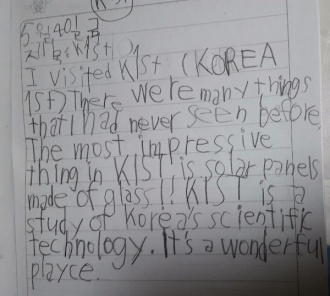 KIST
5월40일 금
제목: KIst
I visited KIst (KOREA
1St) There were many things
that I had never seen before.
The most impressive
thing in KIST is solar panels
made of glass!! KIST is a
study of Korea's scientific
technology. It's a wonderful
playce.